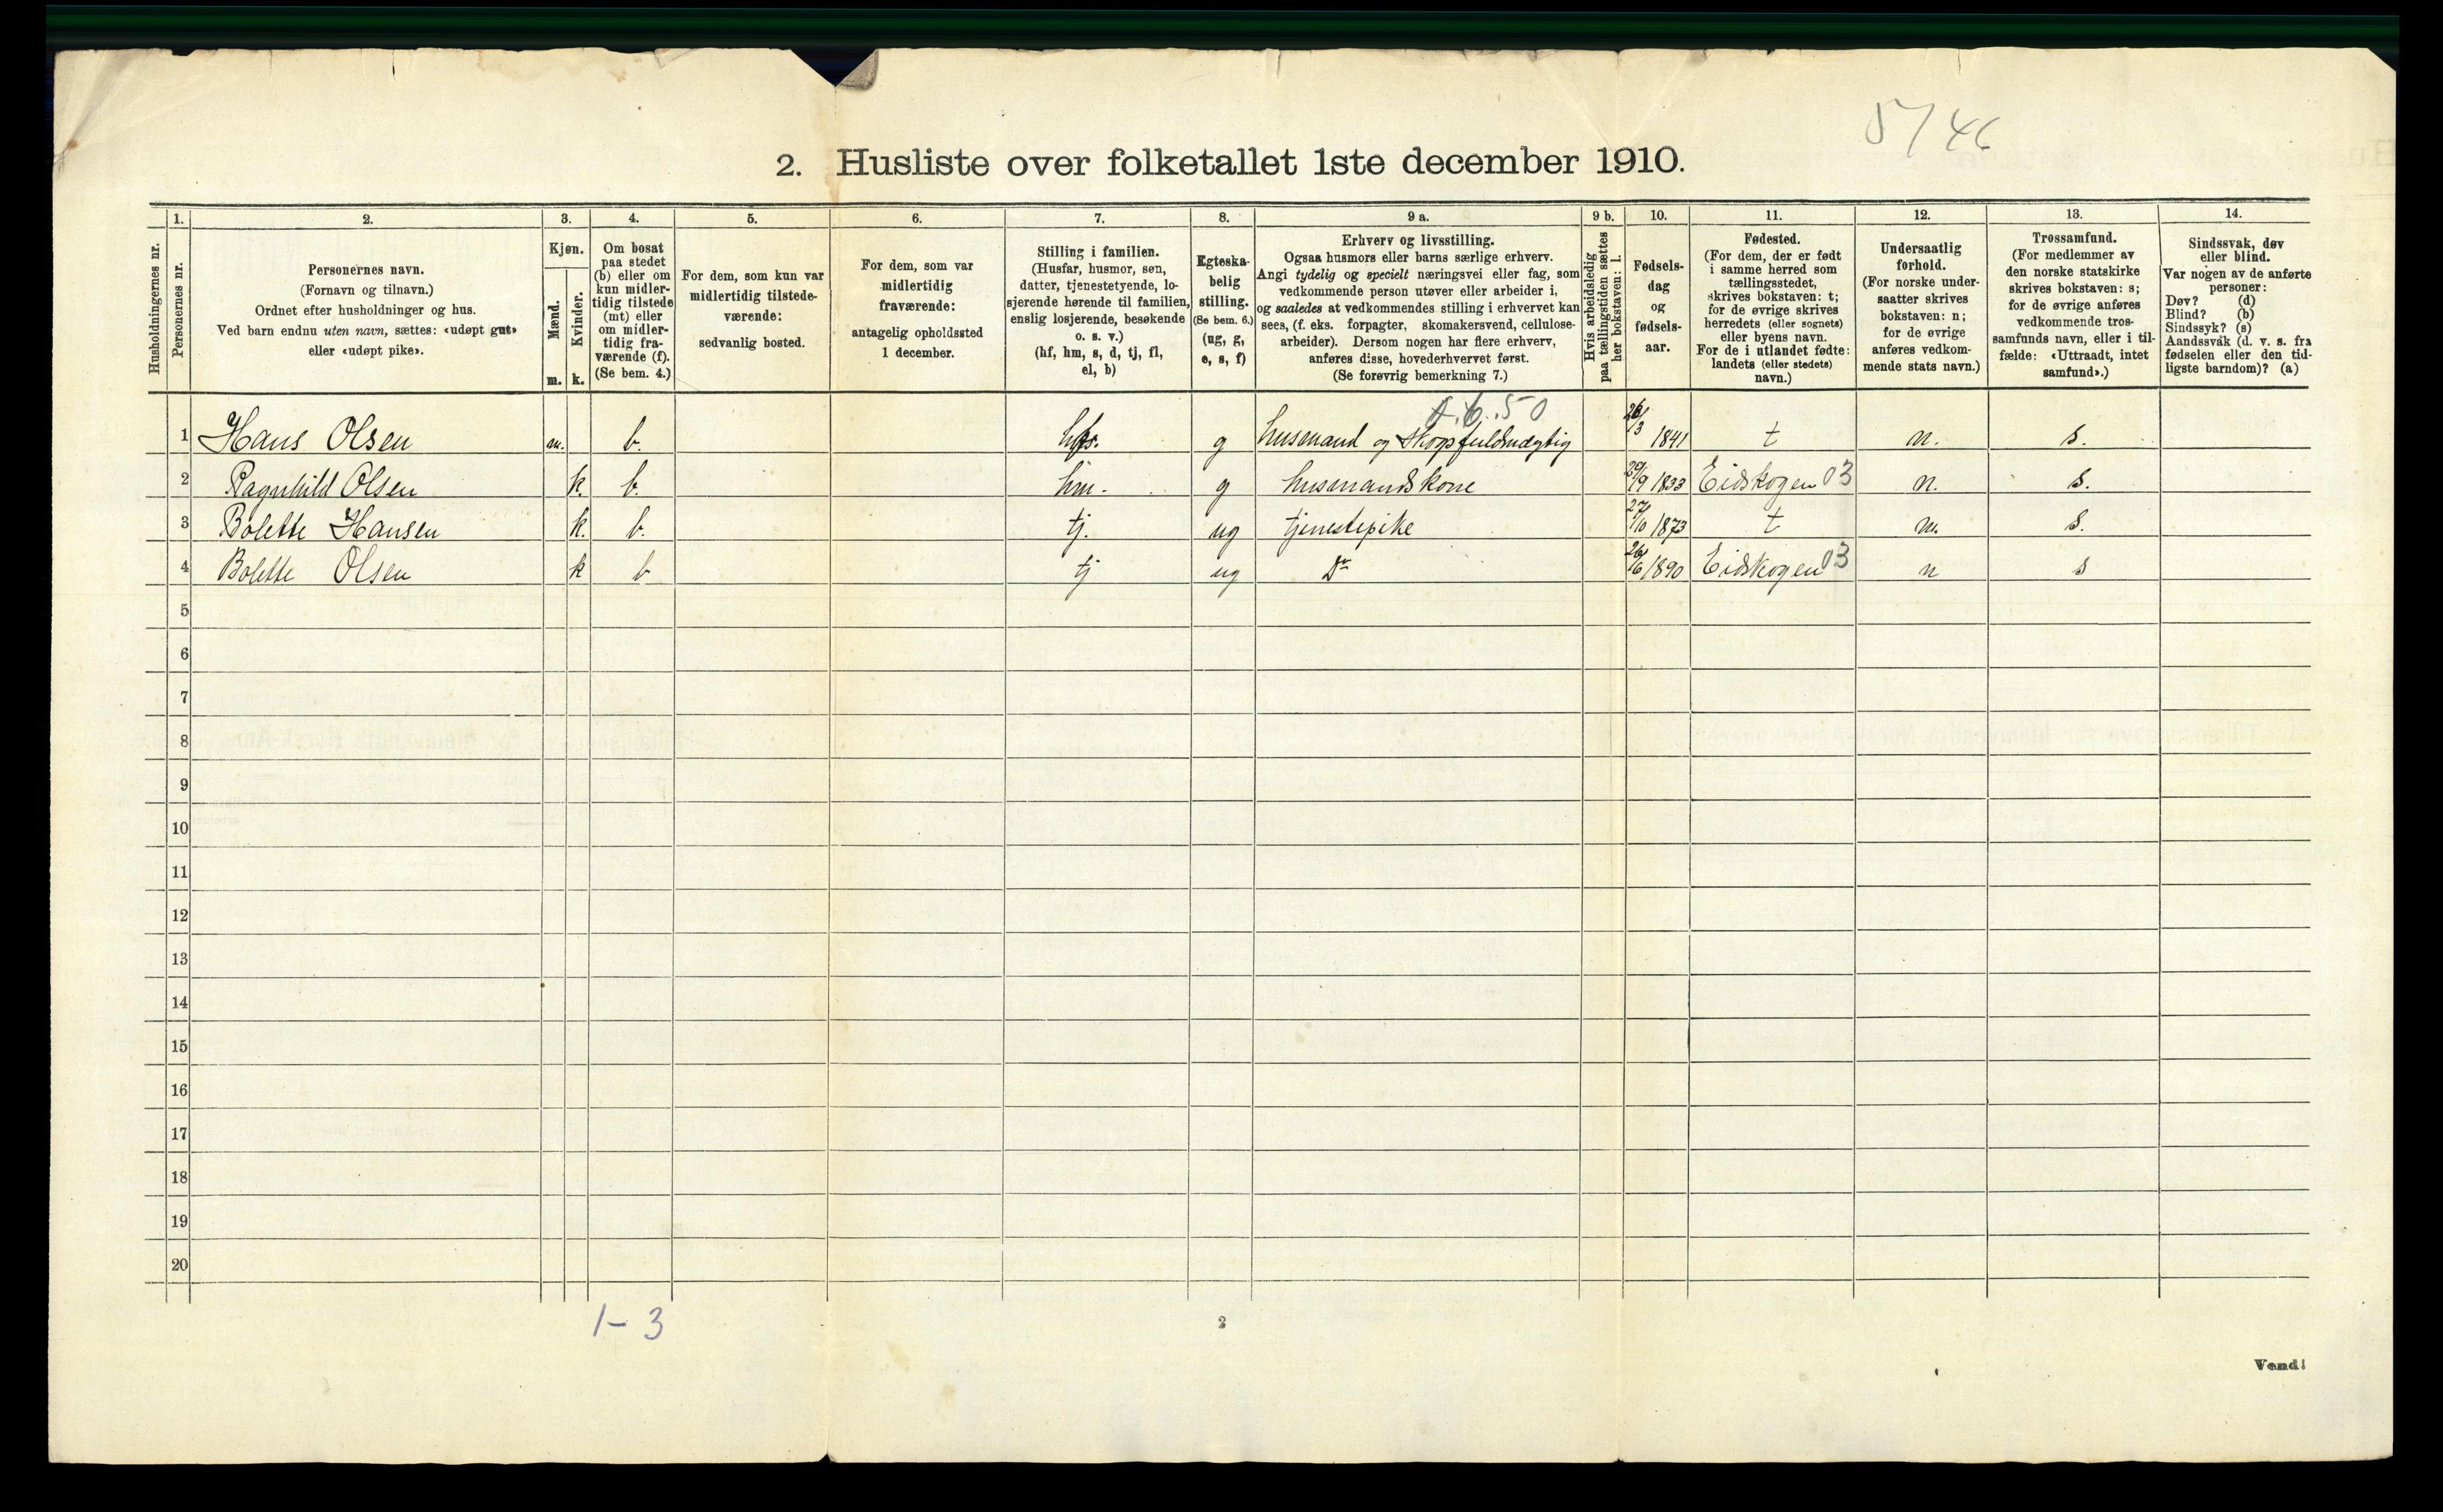 5/46
2. Husliste over folketallet 1ste december 1910.
1. 2. 3. 4. 5. 6. 7. 8. 9 a. 9 b. 10. 11. 12. 13. 14.
Husholdningernes nr.
Personernes nr.
Personernes navn.
(Fornavn og tilnavn.)
Ordnet efter husholdninger og hus.
Ved barn endnu uten navn, sættes: «udøpt gut»
eller «udøpt pike».
Kjøn.
Mænd.
Kvinder.
m. k.
Om bosat
paa stedet
(b) eller om
kun midler-
tidig tilstede
(mt) eller
om midler-
tidig fra-
værende (f).
(Se bem. 4.)
For dem, som kun var
midlertidig tilstede-
værende:
sedvanlig bosted.
For dem, som var
midlertidig
fraværende:
antagelig opholdssted
1 december.
Stilling i familien.
(Husfar, husmor, søn,
datter, tjenestetyende, lo-
sjerende hørende til familien,
enslig losjerende, besøkende
o. s. v.)
(hf, hm, s, d, tj, fl,
el, b)
Egteska-
belig
stilling.
(Se bem. 6.)
(ug, g,
e, s, f)
Erhverv og livsstilling.
Ogsaa husmors eller barns særlige erhverv.
Angi tydelig og specielt næringsvei eller fag, som
vedkommende person utøver eller arbeider i,
og saaledes at vedkommendes stilling i erhvervet kan
sees, (f. eks. forpagter, skomakersvend, cellulose-
arbeider). Dersom nogen har flere erhverv,
anføres disse, hovederhvervet først.
(Se forøvrig bemerkning 7.)
Hvis arbeidsledig
paa tællingstiden sættes
her bokstaven: l.
Fødsels-
dag
og
fødsels-
aar.
Fødested.
(For dem, der er født
i samme herred som
tællingsstedet,
skrives bokstaven: t;
for de øvrige skrives
herredets (eller sognets)
eller byens navn.
For de i utlandet fødte:
landets (eller stedets)
navn.)
Undersaatlig
forhold.
(For norske under-
saatter skrives
bokstaven: n;
for de øvrige
anføres vedkom-
mende stats navn.)
Trossamfund.
(For medlemmer av
den norske statskirke
skrives bokstaven: s;
for de øvrige anføres
vedkommende tros-
samfunds navn, eller i til-
fælde: «Uttraadt, intet
samfund».)
Sindssvak, døv
eller blind.
Var nogen av de anførte
personer:
Døv? (d)
Blind? (b)
Sindssyk? (s)
Aandssvak (d. v. s. fra
fødselen eller den tid-
ligste barndom)? (a)
1 Hans Olsen m. b. g husmand og Skogsfuldmægtig 26/3 1841 t n. s.
2 Ragnhild Olsen k. b. hm. g husmandskone 29/9 1833 Eidskogen 03 n. s.
3 Bolette Hansen k. b. tj. ug tjenestepike 27/10 1873 t n. s.
4 Bolette Olsen k b tj ug Do 26/6 1890 Eidskogen 03 n s
5
6
7
8
9
10
11
12
13
14
15
16
17
18
19
20
1 - 3
2
Vend!